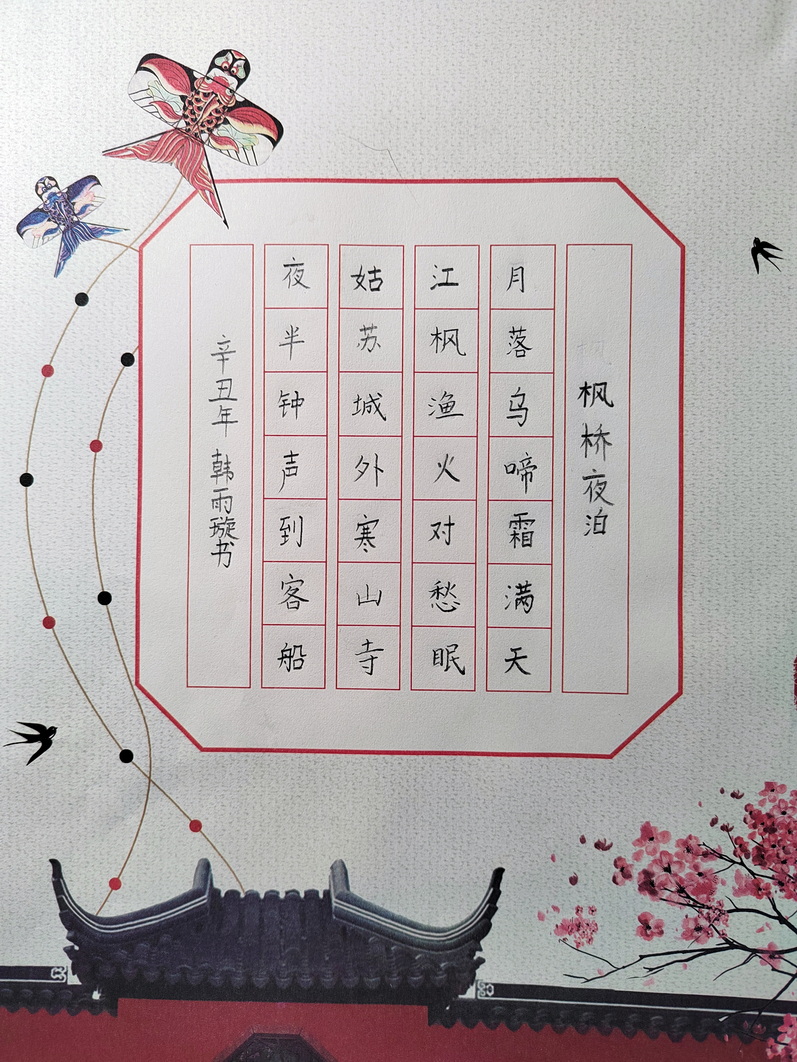 枫桥夜泊
月落乌啼霜满天
江枫渔火对愁眠
姑苏城外寒山寺
夜半钟声到客船
辛丑年 韩雨璇书